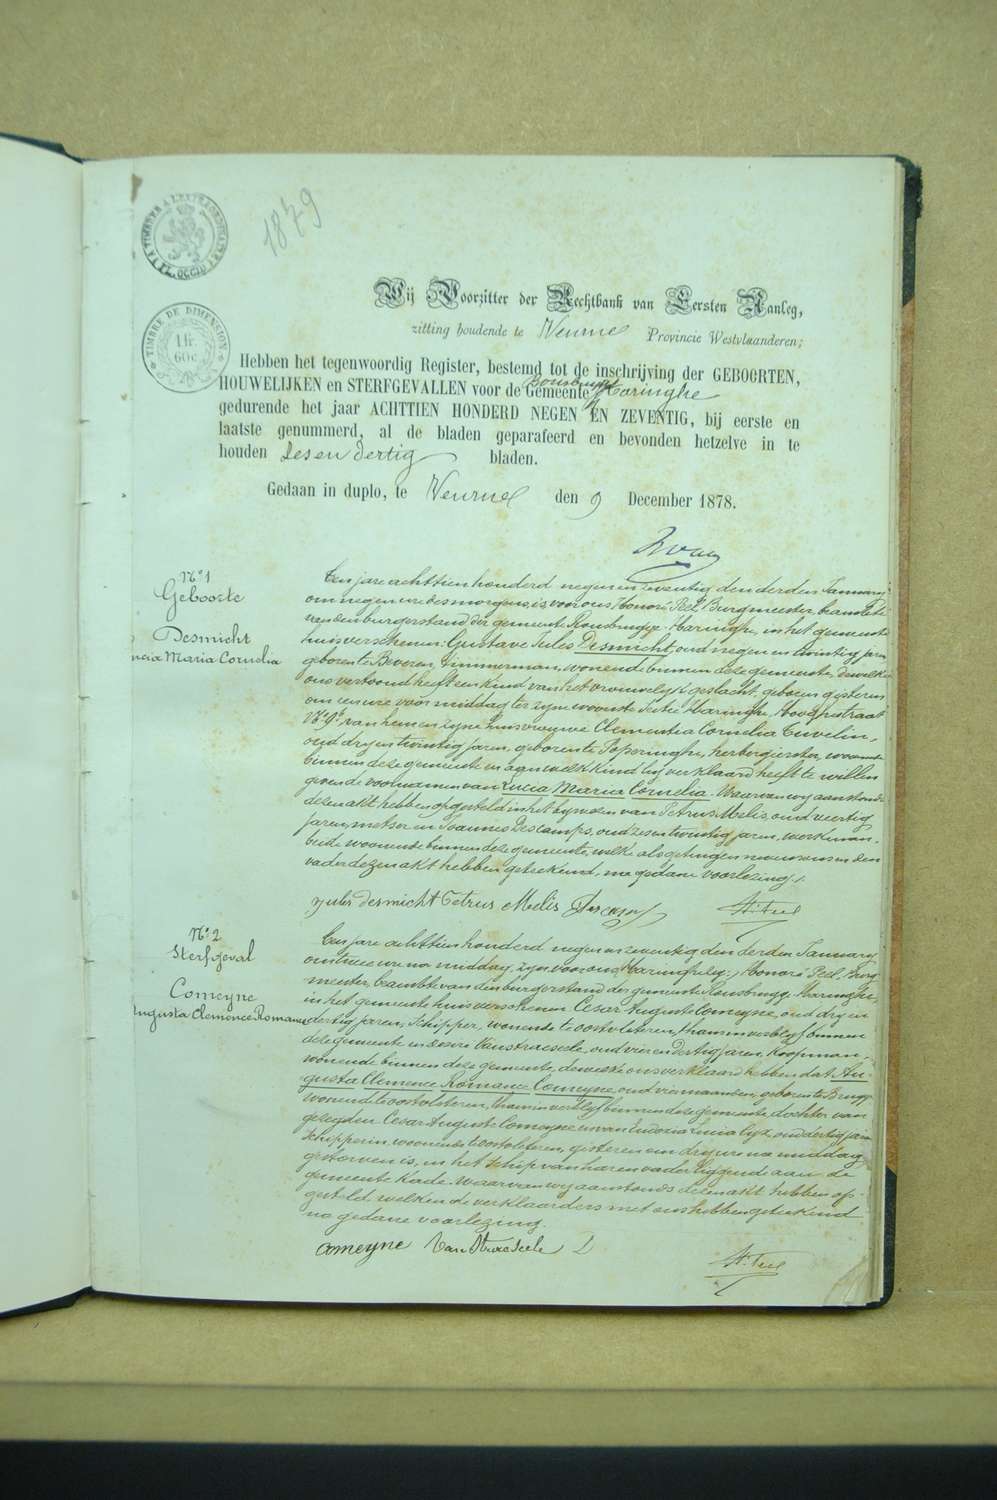 TIMBRE A L'EXTRAORDINAIRE
FL. OCCID
1879
TIMBRE DE DIMENSION
1 fr.
60c
Wij Voorzitter der Rechtbank van Eersten Aanleg,
zitting houdende te Veurne Provincie Westvlaanderen;
Hebben het tegenwoordig Register, bestemd tot de inschrijving der GEBOORTEN,
HOUWELIJKEN en STERFGEVALLEN voor de Gemeente Rousbrugge Haringhe
gedurende het jaar ACHTTIEN HONDERD NEGEN EN ZEVENTIG, bij eerste en
laatste genummerd, al de bladen geparafeerd en bevonden hetzelve in te
houden Zes en dertig bladen.
Gedaan in duplo, te Veurne den 9 December 1878.
N° 1
Geboorte
Desmicht
ucia Maria Cornelia
Een jare achttien honderd negen en zeventig den derden January
om negen ure des morgens, is voor ons Honoré Peel Burgmeester, beambte
van den burgerstand der gemeente Rousbrugge-Haringhe, in het gemeente
huis verschenen: Gustave Jules Desmicht, oud negen en twintig jaren
geboren te Beveren, timmerman, wonende binnen deze gemeente, dewelke
ons vertoond heeft een kind van het vrouwelijk geslacht, geboren gisteren
om een ure voor middag ter zyne woonste Sectie Haringhe, Hoogstraat
N° 9, van hem en zyne huisvrouwe Clementia Cornelia Cuvelin,
oud dry en twintig jaren, geboren te Poperinghe, herbergierster, wonende
binnen deze gemeente en aan welk kind hy verklaard heeft te willen
geven de voornamen van Lucia Maria Cornelia. Waarvan wy aanstonds
dezen akt hebben opgesteld in het bywezen van Petrus Melis, oud veertig
jaren, metser en Joannes Descamps, oud zes en twintig jaren, werkman,
beide wonende binnen deze gemeente, welke als getuigen nevens ons en den
vader dezen akt hebben geteekend, na gedane voorlezing.
jules desmicht Petrus Melis Hr. Peel
N° 2
Sterfgeval
Comeyne
Augusta Clemence Romanie
Een jare achttien honderd negen en zeventig den derden January
om twee ure na middag, zyn voor ons Honoré Peel, Burg
meester, beambte van den burgerstand der gemeente Rousbrugge Haringhe,
in het gemeente huis verschenen Cesar Auguste Comeyne, oud dry en
dertig jaren, Schipper, wonende te oostvleteren, thans in verblyf binnen
deze gemeente en Desiré Vanstraeseele, oud vier en dertig jaren, koopman,
wonende binnen deze gemeente, dewelke ons verklaard hebben dat Au-
gusta Clemence Romanie Comeyne, oud vier maanden, geboren te Brugge
wonende te oostvleteren, thans in verblyf binnen deze gemeente dochter van
gezeyden Cesar Auguste Comeyne en van Eudoxia Lucia oud dertig jaren
schipperin, wonende te oostvleteren, gisteren om dry ure na middag
gestorven is, in het schip van haren vader liggende aan de
gemeente kade. Waarvan wy aanstonds dezen akt hebben op-
gesteld welken de verklaarders met ons hebben geteekend
na gedane voorlezing.
Comeyne Van Straeseele D
Hr. Peel